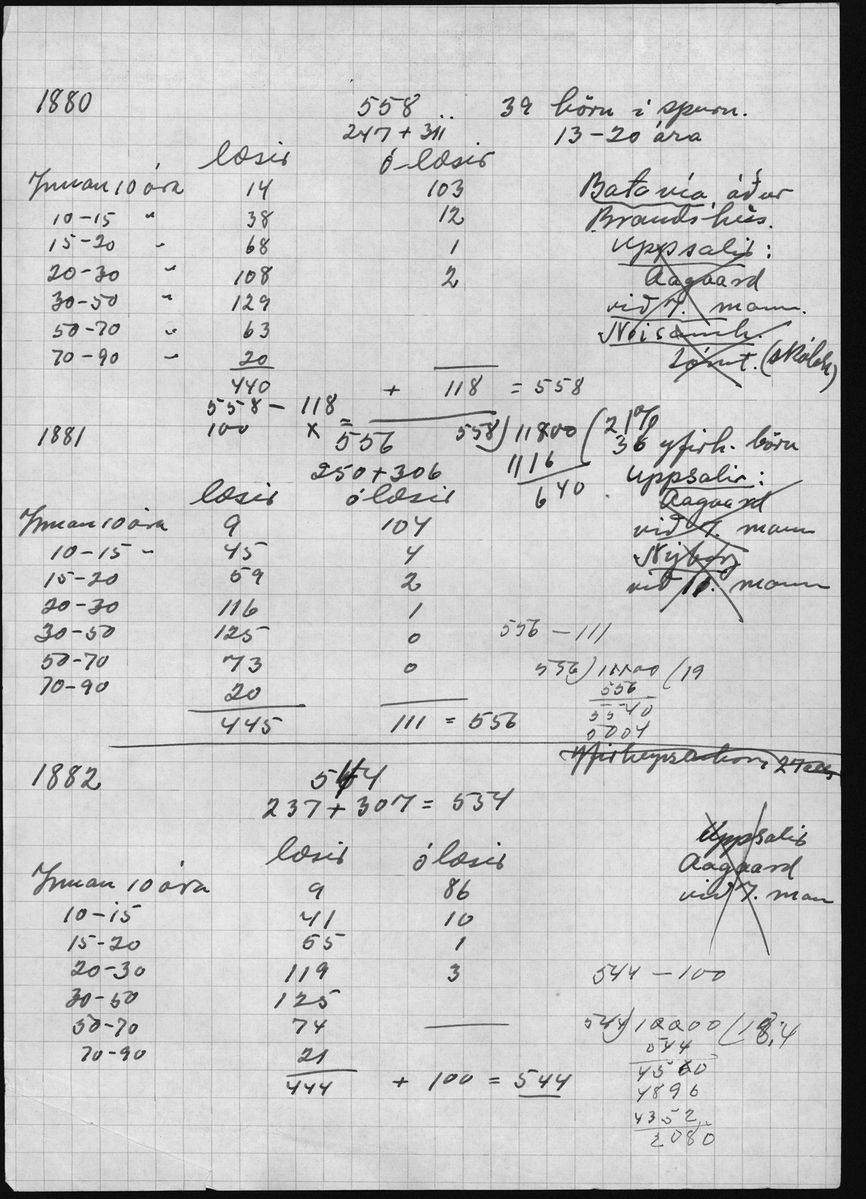 1880 558 39 börn í spurn.
247 + 311 13-20 ára
læsir ólæsir
Innan 10 ára 14 103 Batavía, áður
10-15 " 38 12 Brandshús.
15-20 " 68 1 Uppsalir:
20-30 " 108 2 Aagaard
30-50 " 129 við 7. mann.
50-70 " 63
70-90 " 20 Tómt. (skóleh)
440 + 118 = 558
558 - 118
100 x =
1881 556 558) 11800 (21%
250 + 306 1116 36 yfirh. börn
640 Uppsalir:
læsir ólæsir Aagaard
Innan 10 ára 9 104 við 7. mann
10-15 " 45 4 Nýborg
15-20 59 2 við 11. mann
20-30 116 1
30-50 125 0 556 - 111
50-70 73 0 556) 11100 (19
70-90 20 556
445 111 = 556 5540
5004
1882 544 27
237 + 307 = 534
Uppsalir
læsir ólæsir Aagaard
Innan 10 ára 9 86 við 7. man
10-15 41 10
15-20 65 1
20-30 119 3 544 - 100
30-50 125
50-70 74 544) 10000 (18,4
70-90 21 544
444 + 100 = 544 4560
4896
4352
2080